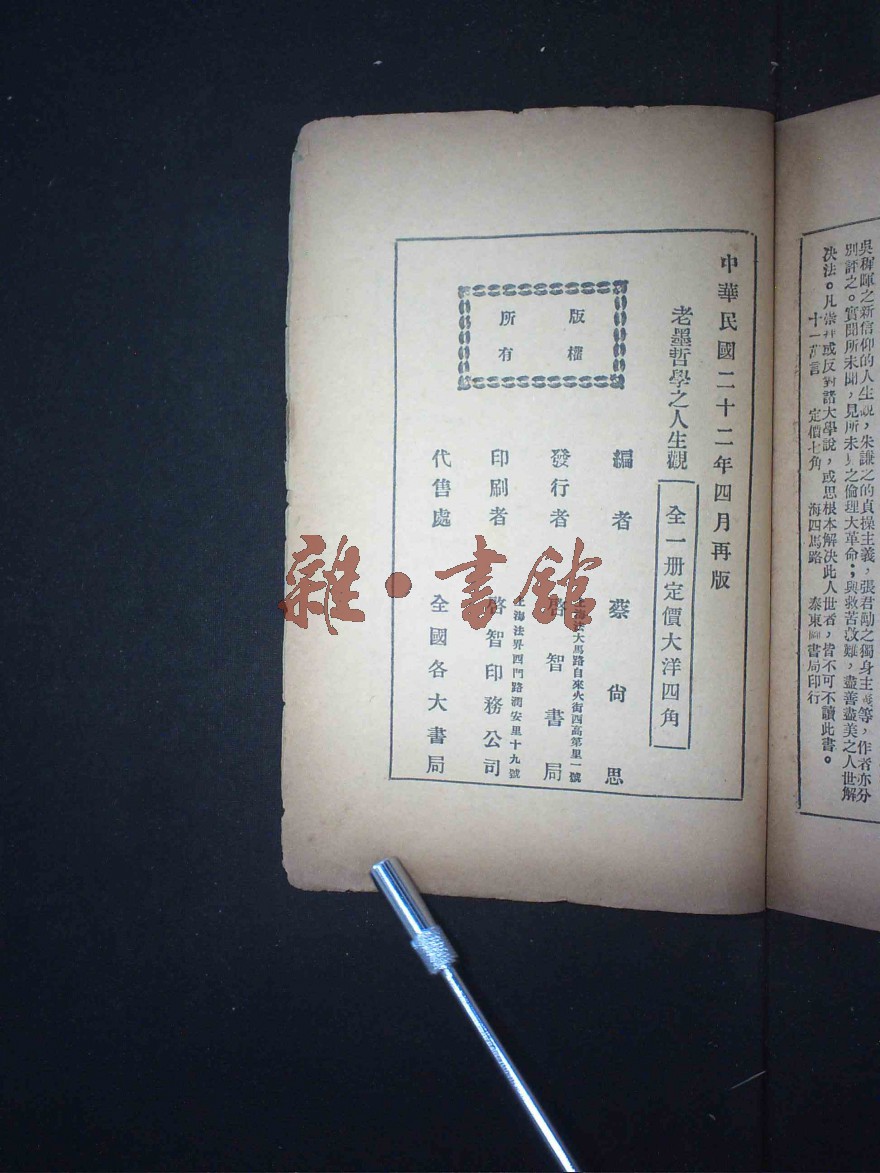 吳稚暉之新信仰的人生觀，朱謙之的貞操主義，張君勱之獨身主義等，作者亦分
別評之。實聞所未聞，見所未見之倫理大革命；與救苦救難，盡善盡美之人世解
决法。凡崇拜或反對諸大學說，或思根本解决此人世者，皆不可不讀此書。
十一萬言 定價七角 海四馬路 泰東圖書局印行
中華民國二十二年四月再版
老墨哲學之人生觀 全一册定價大洋四角
版權
所有
編者 蔡尙思
上海法大馬路自來火街西高第里一號
發行者 啓智書局
上海法界西門路潤安里十九號
印刷者 啓智印務公司
代售處 全國各大書局
雜·書館